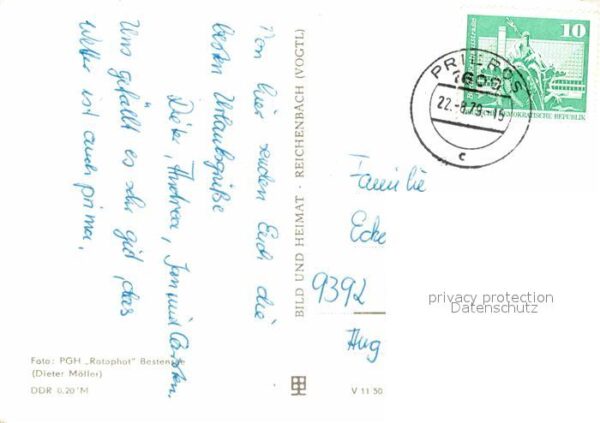 Von hier senden Euch die
besten Urlaubsgrüße
Dieter, Andrea, Jan und Carsten.
Uns gefällt es sehr gut, das
Wetter ist auch prima.
BILD UND HEIMAT · REICHENBACH (VOGTL)
10
DEMOKRATISCHE REPUBLIK
PRIEROS
1600
22.-8.79.-15
c
Familie
Ecke
9392
Aug
privacy protection
Datenschutz
Foto: PGH „Rotophot" Bestensee
(Dieter Möller)
DDR 0,20 M
V 11 50